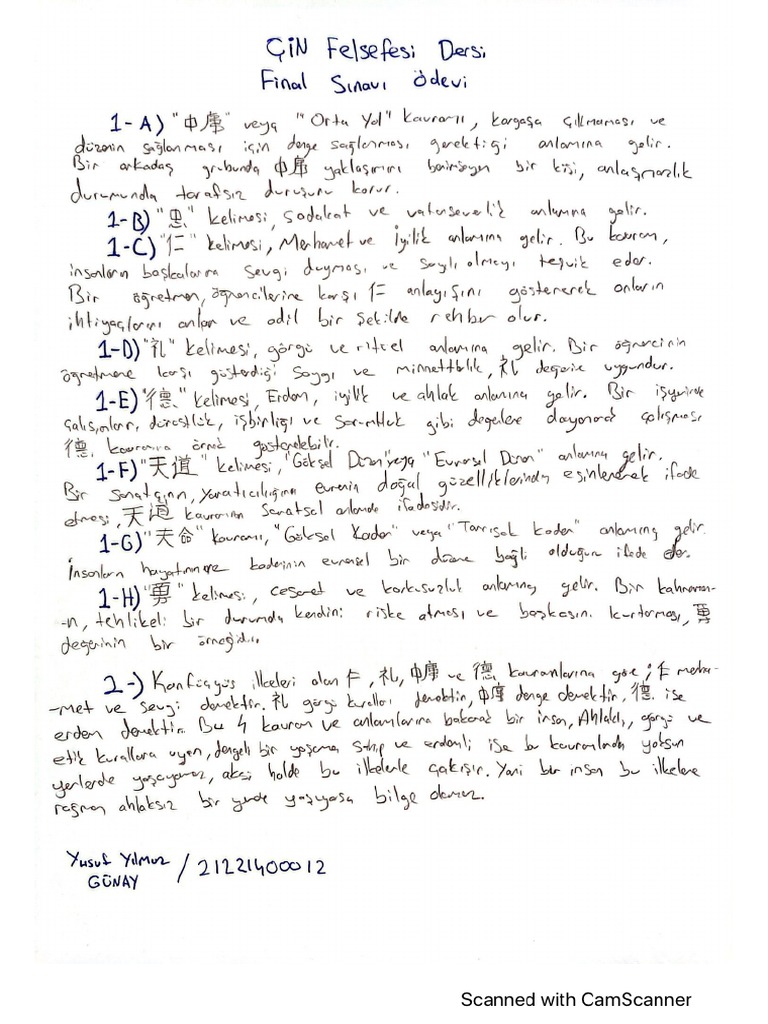 ÇİN Felsefesi Dersi
Final Sınavı Ödevi
1-A) "中庸" veya "Orta Yol" kavramı, kargaşa çıkmaması ve
düzenin sağlanması için denge sağlanması gerektiği anlamına gelir.
Bir arkadaş grubunda 中庸 yaklaşımını benimseyen bir kişi, anlaşmazlık
durumunda tarafsız duruşunu korur.
1-B) "忠" kelimesi, Sadakat ve vatanseverlik anlamına gelir.
1-C) "仁" kelimesi, Merhamet ve İyilik anlamına gelir. Bu kavram,
insanların başkalarına sevgi duyması ve saygılı olmayı teşvik eder.
Bir öğretmen, öğrencilerine karşı 仁 anlayışını göstererek onların
ihtiyaçlarını anlar ve adil bir şekilde rehber olur.
1-D) "礼" kelimesi, görgü ve ritüel anlamına gelir. Bir öğrencinin
öğretmene karşı gösterdiği saygı ve minnettarlık, 礼 değerine uygundur.
1-E) "德" kelimesi, Erdem, iyilik ve ahlak anlamına gelir. Bir işyerinde
çalışanların, dürüstlük, işbirliği ve sorumluluk gibi değerlere dayanarak çalışması
德 kavramına örnek gösterilebilir.
1-F) "天道" kelimesi, "Göksel Düzen" veya "Evrensel Düzen" anlamına gelir.
Bir sanatçının, yaratıcılığını evrenin doğal güzelliklerinden esinlenerek ifade
etmesi, 天道 kavramının Sanatsal anlamda ifadesidir.
1-G) "天命" kavramı, "Göksel Kader" veya "Tanrısal Kader" anlamına gelir.
İnsanların hayatının ve kaderinin evrensel bir düzene bağlı olduğunu ifade eder.
1-H) "勇" kelimesi, cesaret ve korkusuzluk anlamına gelir. Bir kahraman-
-ın, tehlikeli bir durumda kendini riske atması ve başkasını kurtarması, 勇
değerinin bir örneğidir.
2-) Konfüçyüs ilkeleri olan 仁, 礼, 中庸 ve 德 kavramlarına göre; 仁 merha-
-met ve sevgi demektir. 礼 görgü kuralları demektir, 中庸 denge demektir, 德 ise
erdem demektir. Bu 4 kavram ve anlamlarına bakarak bir insan, Ahlaklı, görgü ve
etik kurallara uyan, dengeli bir yaşama sahip ve erdemli ise bu kavramlardan yoksun
yerlerde yaşayamaz, aksi halde bu ilkelerle çakışır. Yani bir insan bu ilkelere
rağmen ahlaksız bir yerde yaşıyorsa bilge olamaz.
Yusuf Yılmaz
GÜNAY / 21221400012
Scanned with CamScanner